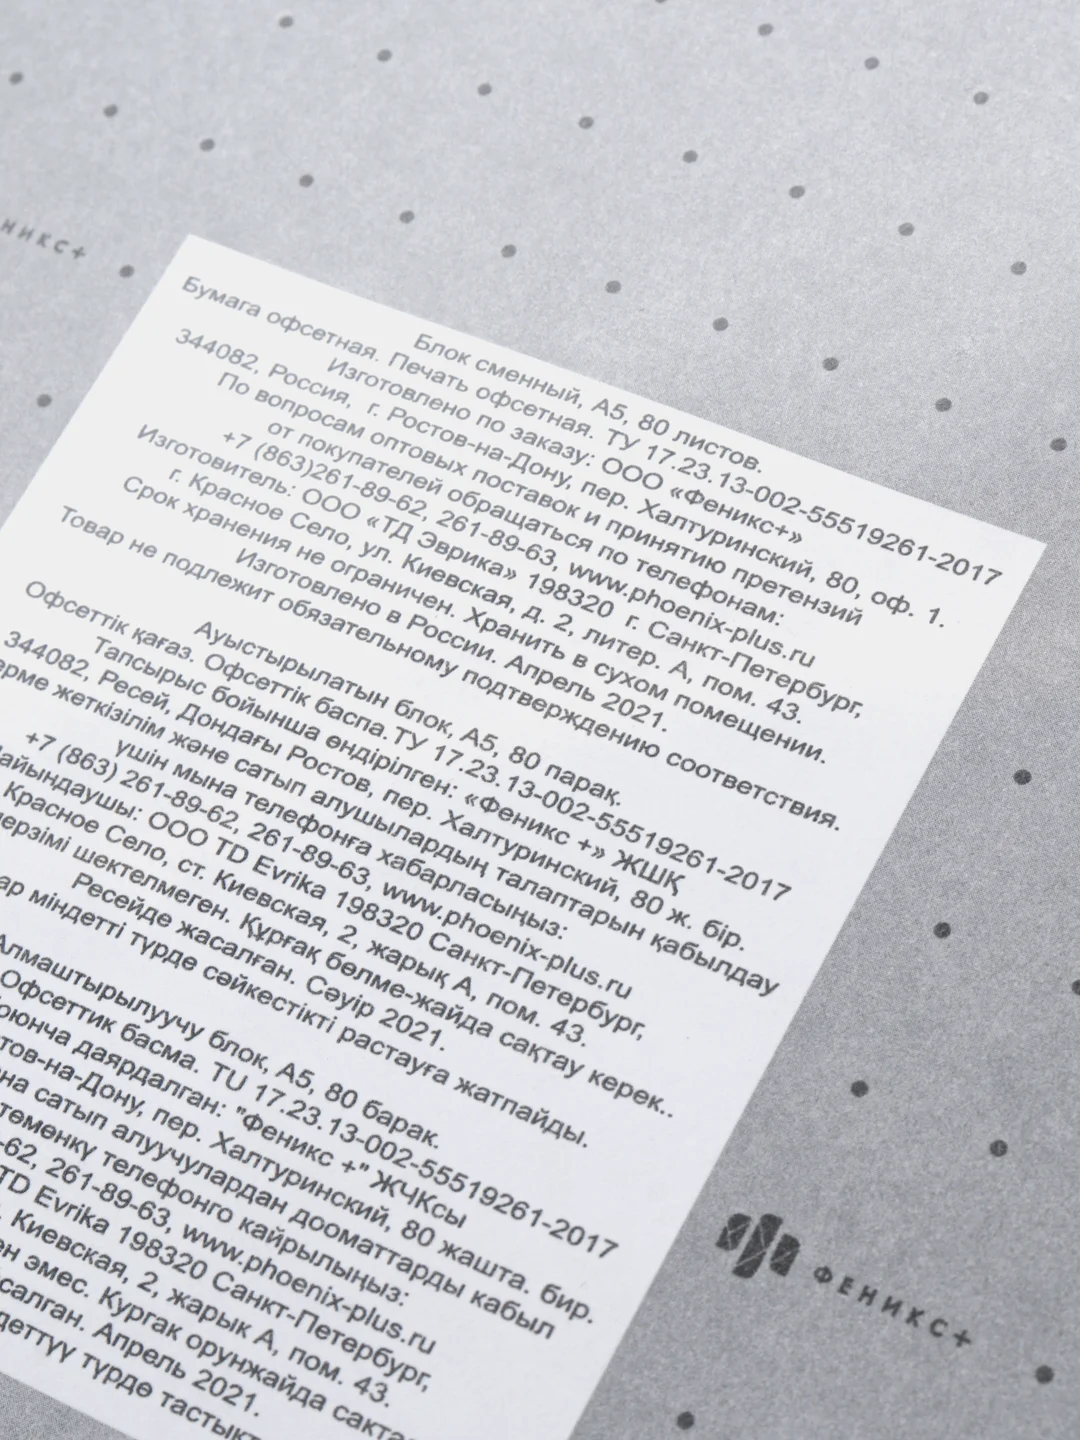 НИКС+
Блок сменный, А5, 80 листов.
Бумага офсетная. Печать офсетная. ТУ 17.23.13-002-55519261-2017
Изготовлено по заказу: ООО «Феникс+»
344082, Россия, г. Ростов-на-Дону, пер. Халтуринский, 80, оф. 1.
По вопросам оптовых поставок и принятию претензий
от покупателей обращаться по телефонам:
+7 (863)261-89-62, 261-89-63, www.phoenix-plus.ru
Изготовитель: ООО «ТД Эврика» 198320 г. Санкт-Петербург,
г. Красное Село, ул. Киевская, д. 2, литер. А, пом. 43.
Срок хранения не ограничен. Хранить в сухом помещении.
Изготовлено в России. Апрель 2021.
Товар не подлежит обязательному подтверждению соответствия.
Ауыстырылатын блок, А5, 80 парақ.
Офсеттік қағаз. Офсеттік баспа.ТУ 17.23.13-002-55519261-2017
Тапсырыс бойынша өндірілген: «Феникс +» ЖШҚ
344082, Ресей, Дондағы Ростов, пер. Халтуринский, 80 ж. бір.
ерме жеткізілім және сатып алушылардың талаптарын қабылдау
үшін мына телефонға хабарласыңыз:
+7 (863) 261-89-62, 261-89-63, www.phoenix-plus.ru
айындаушы: ООО TD Evrika 198320 Санкт-Петербург,
Красное Село, ст. Киевская, 2, жарық А, пом. 43.
мерзімі шектелмеген. Құрғақ бөлме-жайда сақтау керек..
Ресейде жасалған. Сәуір 2021.
ар міндетті түрде сәйкестікті растауға жатпайды.
Алмаштырылуучу блок, А5, 80 барак.
Офсеттик басма. TU 17.23.13-002-55519261-2017
оюнча даярдалган: "Феникс +" ЖЧКсы
тов-на-Дону, пер. Халтуринский, 80 жашта. бир.
на сатып алуучулардан дооматтарды кабыл
төмөнкү телефонго кайрылыңыз:
-62, 261-89-63, www.phoenix-plus.ru
TD Evrika 198320 Санкт-Петербург,
Киевская, 2, жарык А, пом. 43.
ен эмес. Кургак орунжайда сакта
салган. Апрель 2021.
деттүү түрдө тастыкт
ФЕНИКС+